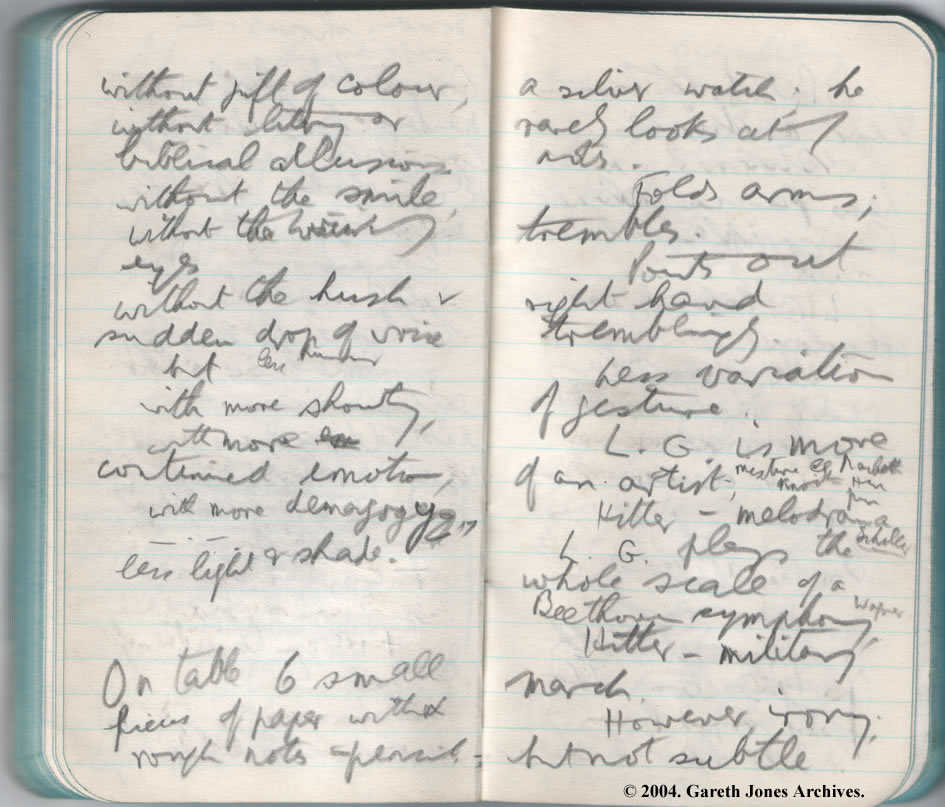 without gift of colour,
without literary or
biblical allusions
without the smile,
without the
eyes
without the hush &
sudden drop of voice
but less humour
with more shouting,
with more
continued emotion,
with more demagogy
less light & shade.
On table 6 small
pieces of paper with
rough notes - pencil -
a silver watch; he
rarely looks at
notes.
Folds arms;
trembles.
Points out
right hand
tremblingly
Less variation
of gesture.
L. G. is more
of an artist - mixture of
Hitler - melodrama
Schiller
L. G. plays the
whole scale of a
Beethoven symphony, Wagner
Hitler - military
march
However, irony,
but not subtle
© 2004. Gareth Jones Archives.